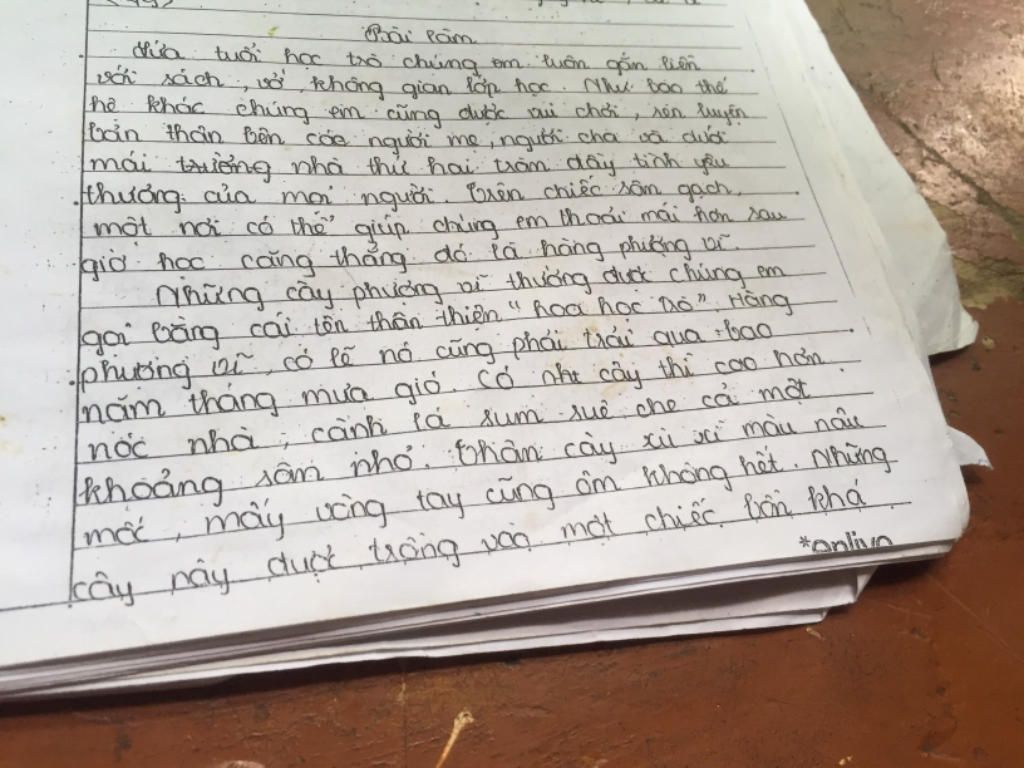 Bài làm
Lứa tuổi học trò chúng em luôn gắn liền
với sách, vở, không gian lớp học. Như bao thế
hệ khác chúng em cũng được vui chơi, rèn luyện
bản thân bên các người mẹ, người cha và dưới
mái trường nhà thứ hai tràn đầy tình yêu
thương của mọi người. Trên chiếc sân gạch
một nơi có thể giúp chúng em thoải mái hơn sau
giờ học căng thẳng đó là hàng phượng vĩ.
Những cây phượng vĩ thường được chúng em
gọi bằng cái tên thân thiện "hoa học trò". Hàng
phượng vĩ, có lẽ nó cũng phải trải qua bao
năm tháng mưa gió. Có như cây thì cao hơn
nóc nhà, cành lá sum suê che cả một
khoảng sân nhỏ. Thân cây xù xì màu nâu
mốc, mấy vòng tay cũng ôm không hết. Những
cây này được trồng vào một chiếc bồn khá